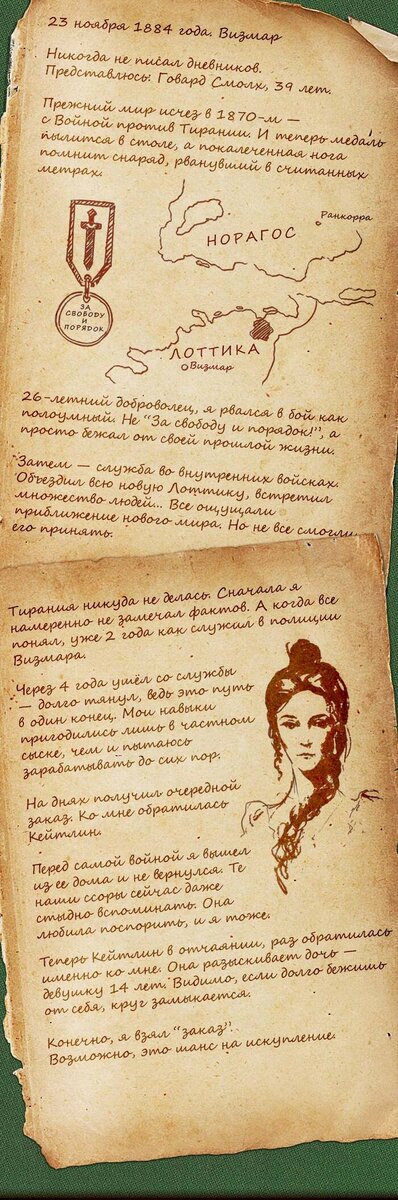 23 ноября 1884 года. Визмар
Никогда не писал дневников.
Представлюсь: Говард Смолх, 39 лет.
Прежний мир исчез в 1870-м —
с Войной против Тирании. И теперь медаль
пылится в столе, а покалеченная нога
помнит снаряд, рванувший в считанных
метрах.
ЗА
СВОБОДУ
И
ПОРЯДОК
Ранкорра
НОРАГОС
ЛОТТИКА
Визмар
26-летний доброволец, я рвался в бой как
полоумный. Не “За свободу и порядок!”, а
просто бежал от своей прошлой жизни.
Затем — служба во внутренних войсках.
Объездил всю новую Лоттику, встретил
множество людей... Все ощущали
приближение нового мира. Но не все смогли
его принять.
Тирания никуда не делась. Сначала я
намеренно не замечал фактов. А когда все
понял, уже 2 года как служил в полиции
Визмара.
Через 4 года ушёл со службы
— долго тянул, ведь это путь
в один конец. Мои навыки
пригодились лишь в частном
сыске, чем и пытаюсь
зарабатывать до сих пор.
На днях получил очередной
заказ. Ко мне обратилась
Кейтлин.
Перед самой войной я вышел
из ее дома и не вернулся. Те
наши ссоры сейчас даже
стыдно вспоминать. Она
любила поспорить, и я тоже.
Теперь Кейтлин в отчаянии, раз обратилась
именно ко мне. Она разыскивает дочь —
девушку 14 лет. Видимо, если долго бежишь
от себя, круг замыкается.
Конечно, я взял “заказ”.
Возможно, это шанс на искупление.